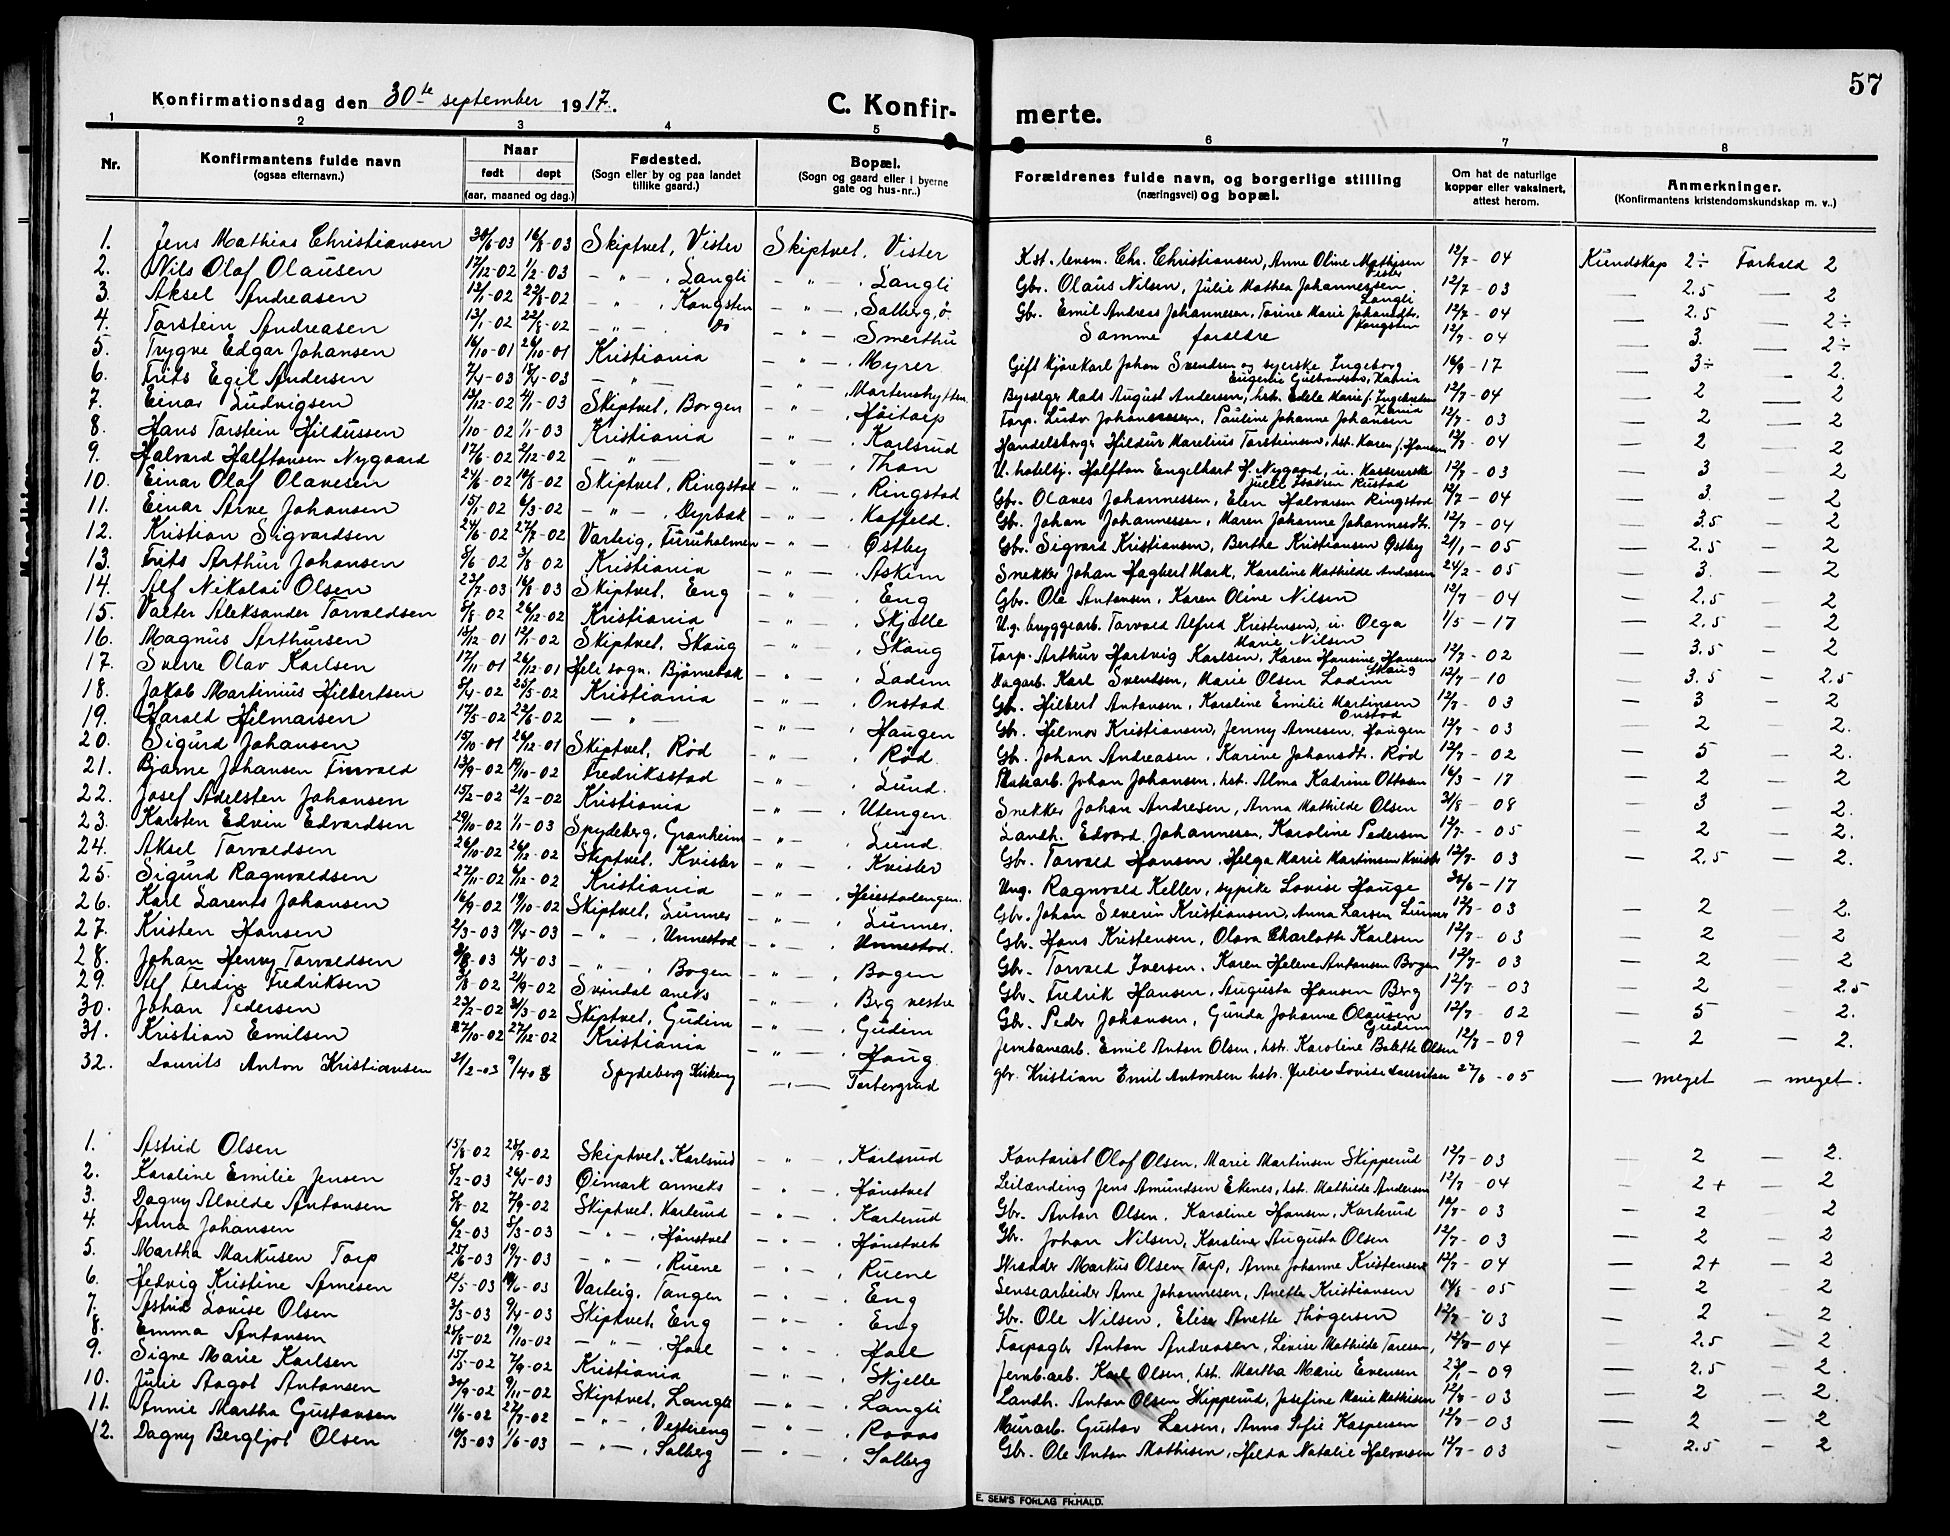 57
Konfirmationsdag den 30te september 1917.
C. Konfir- merte.
1 2 3 4 5 6 7 8
Nr.
Konfirmantens fulde navn
(ogsaa efternavn.)
Naar
født døpt
(aar, maaned og dag.)
Fødested.
(Sogn eller by og paa landet
tillike gaard.)
Bopæl.
(Sogn og gaard eller i byerne
gate og hus-nr..)
Forældrenes fulde navn, og borgerlige stilling
(næringsvei) og bopæl.
Om hat de naturlige
kopper eller vaksinert,
attest herom.
Anmerkninger.
(Konfirmantens kristendomskundskap m. v..)
1. Jens Mathias Christiansen 30/6-03 16/8-03 Skiptvet, Vister Skiptvet, Vister Kst. lensm. Chr. Christiansen, Anne Oline Mathisen Vister 12/7-04 Kundskap 2÷ Forhold 2
2. Nils Olaf Olausen 17/12-02 1/2-03 — " — , Langli — " — , Langli Gbr. Olaus Nilsen, Julie Mathea Johannessen Langli 12/7-03 — 2.5 — 2
3. Aksel Andreasen 13/1-02 22/8-02 — " — , Kongsten — " — , Solberg, ø. Gbr. Emil Andreas Johannesen, Torine Marie Johansdtr. Kongsten 12/7-04 — 2.5 — 2÷
4. Torstein Andreasen 13/1-02 22/8-02 — " — do — " — . Smerthu Samme foreldre 12/7-04 — 3. — 2÷
5. Trygve Edgar Johansen 16/10-01 26/10-01 Kristiania — " — . Myrer Gift kjørekarl Johan Svendsen og syerske Ingeborg Eugenie Gulbrandsen, Kania 16/9-17 — 3÷ — 2.
6. Frits Egil Andersen 7/4-03 18/4-03 — " — — " — . Martenshytten Bysselger Mads August Andersen, hst. Edele Marie f. Ingebretsen Xania 12/7-04 — 2 — 2
7. Einar Ludvigsen 13/12-02 4/1-03 Skiptvet, Borgen — " — . Høitorp Torp. Ludv. Johannessen, Pauline Johanne Johansen 12/7-03 — 2 — 2
8. Hans Torstein Hildussen /10-02 1/1-03 Kristiania — " — . Karlsrud Handelsborg. Hildur Marelius Torstensen, hst. Karen f. Hansen 12/7-04 — 2 — 2
9. Halvard Halftansen Nygaard 17/6-02 2/12-02 — " — — " — . Thon U. hotelbj. Halftan Engelhart H. Nygaard, u. kassererske Julie Isaksen Rustad 12/7-03 — 3 — 2
10. Einar Olaf Olavesen 24/6-02 10/8-02 Skiptvet, Ringstad — " — . Ringstad Gbr. Olaves Johannessen, Elen Halvorsen Ringstad 12/7-04 — 3. — 2
11. Einar Arve Johansen 15/1-02 6/3-02 — " — , Dyrbæk — " — . Kaffeld. Gbr. Johan Johannessen, Maren Johanne Johannesdt. 12/7-04 — 3.5 — 2
12. Kristian Sigvardsen 24/6-02 27/7-02 Varteig, Furuholmen — " — . Østby Gbr. Sigvard Kristiansen, Berthe Kristiansen Østby 21/1-05 — 2.5 — 2
13. Frits Arthur Johansen 8/6-02 3/8-02 Kristiania — " — . Askim Snekker Johan Hagbert Mork, Karoline Mathilde Andresen 24/2-05 — 3. — 2
14. Alf Nikolai Olsen 23/7-03 16/8-03 Skiptvet, Eng — " — . Eng Gbr. Ole Antonsen, Karen Oline Nilsen 12/7-04 — 2.5 — 2
15. Valter Aleksander Torvaldsen 8/8-02 26/12-02 Kristiania — " — . Skjelle U.g. bryggearb. Torvald Alfred Kristensen, u. Olga Marie Nilsen 1/5-17 — 2.5 — 2
16. Magnus Arthursen 15/12-01 12/1-02 Skiptvet, Skaug — " — . Skaug Torp. Arthur Hartvig Karlsen, Karen Hansine Hansen Skaug 12/7-02 — 3.5 — 2
17. Sverre Olav Karlsen 17/11-01 26/12-01 Heli sogn. Bjørnebæk — " — . Lodim Dagarb. Karl Svendsen, Marie Olsen Lodim 12/7-10 — 3.5 — 2.5
18. Jakob Martinius Hilbertsen 8/4-02 25/5-02 Kristiania — " — . Onstad Gbr. Hilbert Antonsen, Karoline Emilie Martinsen Onstad 12/7-03 — 3 — 2
19. Harald Hilmarsen 17/5-02 22/6-02 — " — — " — . Haugen Gbr. Hilmar Kristiansen, Jenny Arnesen Haugen 12/7-03 — 2 — 2.
20. Sigurd Johansen 15/10-01 26/12-01 Skiptvet, Rød — " — . Rød. Gbr. Johan Andreasen, Karine Johansdt. Rød 12/7-02 — 5 — 2.
21. Bjarne Johansen Tinvald 13/9-02 19/10-02 Fredriksstad — " — . Lund. Johan Johansen, hst. Alma Katrine Ottosen 16/3-17 — 2 — 2
22. Josef Adelsten Johansen 15/2-02 21/2-02 Kristiania — " — . Utengen. Snekker Johan Andresen, Anna Mathilde Olsen 31/8-08 — 3 — 2.
23. Karsten Edvin Edvardsen 29/10-02 1/1-03 Spydeberg, Granheim — " — . Lund. Landh. Edvard Johannessen, Karoline Pedersen 12/7-05 — 2 — 2.
24. Aksel Torvaldsen 26/10-02 26/12-02 Skiptvet, Kvister — " — . Kvister Gbr. Torvald Hansen, Helga Marie Martinsen Kvister 12/7-03 — 2.5 — 2.
25. Sigurd Ragnvaldsen 27/11-02 6/12-02 Kristiania — " — . Heiestadengen. Ung. Ragnvald Keller, sypike Lovise Hauge 30/6-17
26. Karl Larents Johansen 16/9-02 19/10-02 Skiptvet, Lunner — " — . Lunner. Gbr. Johan Severin Kristiansen, Anna Larsen Lunner 12/7-03 — 2 2.
27. Kristen Hansen 2/3-03 19/4-03 — " — , Unnestad — " — . Unnestad. Gbr. Hans Kristensen, Olava Charlotte Karlsen 12/7-03 — 2 — 2
28. Johan Henry Torvaldsen 3/8-03 12/4-03 — " — , Bogen — " — . Bogen Gbr. Torvald Iversen, Karen Helene Antonsen Bogen 12/7-03 — 2 — 2
29. Alf Ferdin. Fredriksen 3/8-02 21/9-02 Svindal aneks — " — . Berg vestre Gbr. Fredrik Hansen, Augusta Hansen Berg 12/7-03 — 2 — 2.5
30. Johan Pedersen 23/2-02 31/3-02 Skiptvet, Gudim — " — . Gudim Gbr. Peder Johansen, Gunda Johanne Olausen Gudim 12/7-02 — 5 — 2.
31. Kristian Emilsen 27/10-02 27/12-02 Kristiania — " — . Haug Jernbanearb. Emil Anton Olsen, hst. Karoline Bolette Olsen 12/8-09 — 2 — 2.
32. Laurits Anton Kristiansen 21/2-03 9/4 03 Spydeberg Kirkeng — " — Torbergrud gbr. Kristian Emil Antonsen hstr. Julie Lovise Lauritsen 27/6-05 — meget — meget.
1. Astrid Olsen 15/8-02 28/9-02 Skiptvet, Karlsrud — " — . Karlsrud Kontorist Olof Olsen, Marie Martinsen Skipperud 12/7-03 — 2 — 2.
2. Karoline Emilie Jensen 8/2-03 26/4-03 Øimark anneks — " — . Hønstvet Leilænding Jens Amundsen Ekenes, hst. Mathilde Andersen 12/7-04 — 2+ — 2
3. Dagny Alvilde Antonsen 8/8-02 7/9-02 Skiptvet, Karterud — " — . Karterud Gbr. Anton Olsen, Karoline Hansen, Karterud 12/7-03 — 2 — 2
4. Anna Johansen 6/2-03 8/3-03 — " — , Hønstvet — " — . Hønstvet Gbr. Johan Nilsen, Karoline Augusta Olsen 12/7-03 — 2 — 2
5. Martha Markusen Torp 25/6-03 19/7-03 — " — , Ruene — " — . Ruene Skrædder Markus Olsen Torp, Anne Johanne Kristensen 12/7-04 — 2+ — 2
6. Hedvig Kristine Arnesen 12/5-03 14/6-03 Varteig, Tangen — " — . Eng Lensearbeider Arne Johannesen, Anette Kristiansen 14/8-05 — 2 2
7. Astrid Lovise Olsen 3/3-03 9/4-03 Skiptvet, Eng — " — . Eng Gbr. Ole Nilsen, Elise Anette Thøgersen 12/7-03 — 2 — 2
8. Emma Antonsen 25/8-02 19/10-02 — " — Hoel — " — . Hoel Forpagter Anton Andreasen, Lovise Mathilde Toresen, 12/7-04 — 2.5 — 2
9. Signe Marie Karlsen 15/5-02 7/9-02 Kristiania — " — . Skjelle Jernb.arb. Karl Olsen, hst. Martha Marie Evensen 23/1-09 — 2.5 — 2.
10. Julie Aagot Antonsen 30/9-02 9/11-02 Skiptvet, Langli — " — . Langli Landh. Anton Olsen Skipperud, Josefine Marie Mathisen 12/7-03 — 2 — 2.
11. Annie Martha Gustavsen 11/6-02 27/7-02 — " — , Vestreng — " — . Roaas Murarb. Gustav Larsen, Anna Sofie Kaspersen 12/7-03 — 2 — 2
12. Dagny Bergljot Olsen 19/3-03 1/6-03 — " — , Solberg — " — . Solberg Gbr. Ole Anton Mathisen, Hilda Natalie Halvorsen 12/7-03 — 2.5 — 2
E. SEM'S FORLAG FR.HALD.